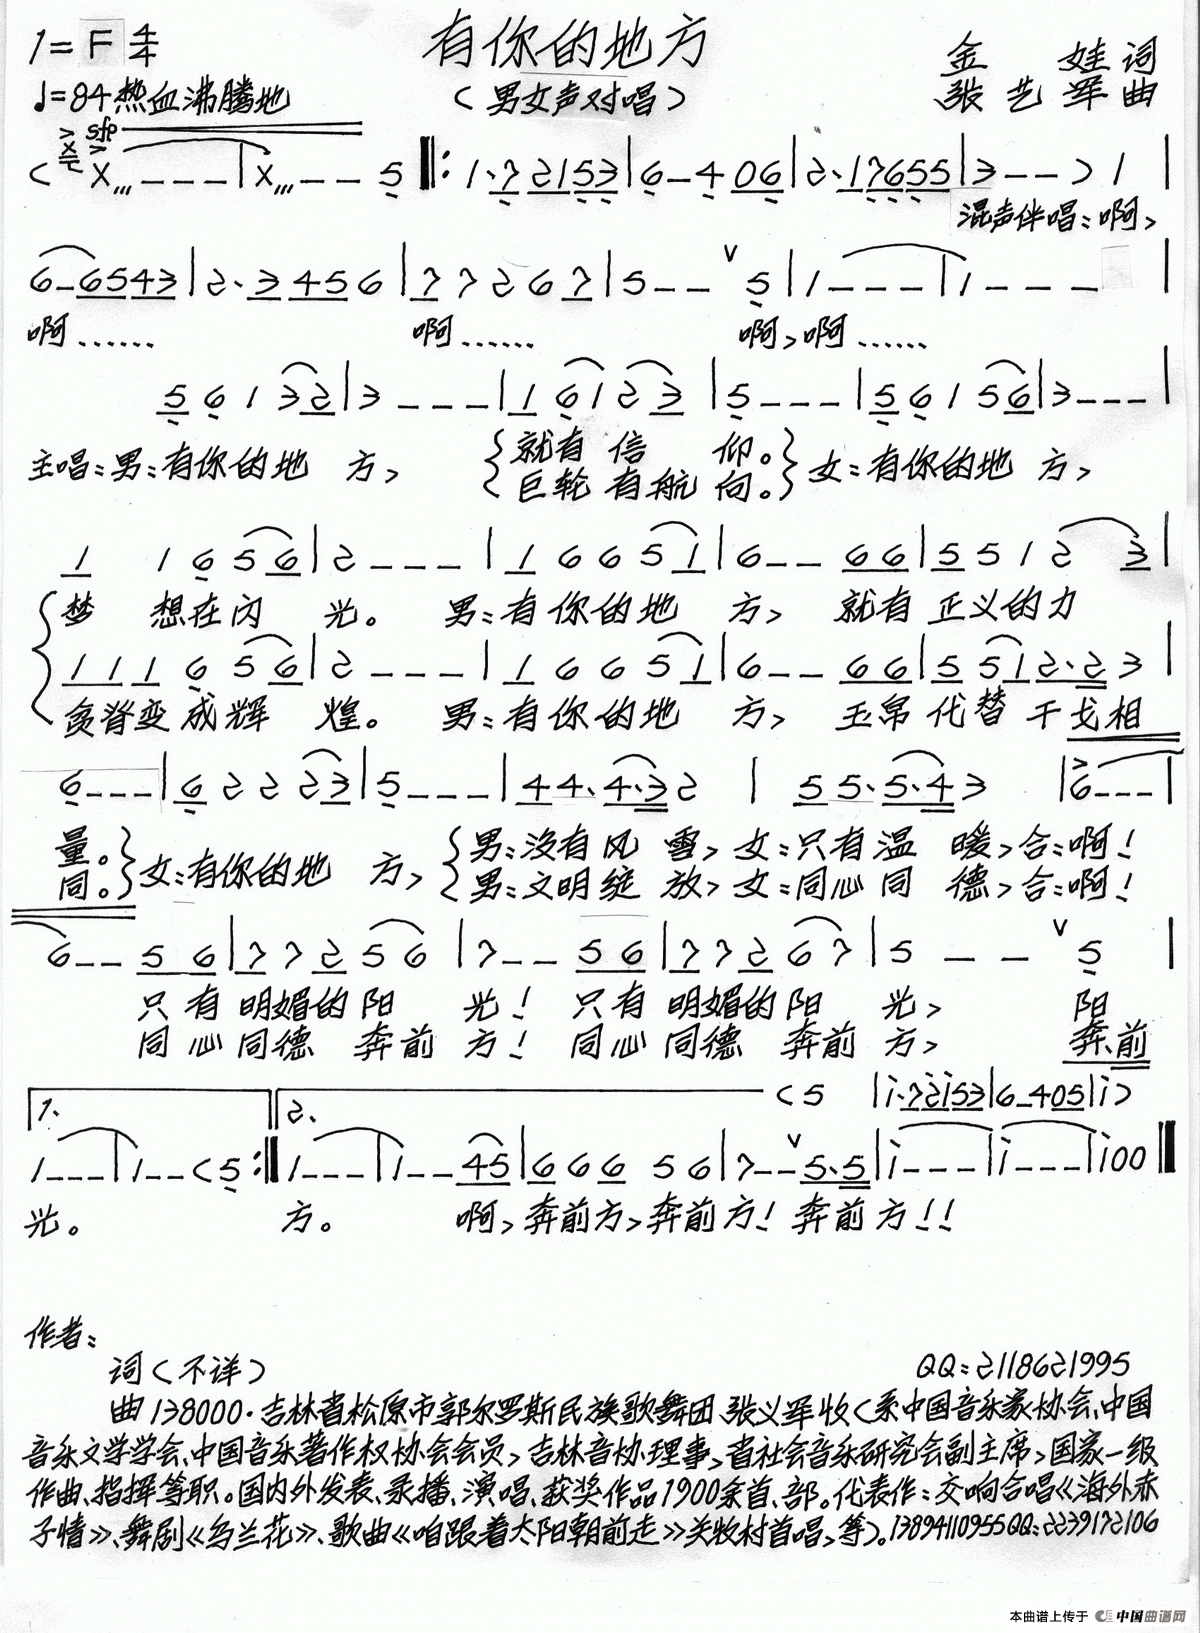 有你的地方
1=F 4/4
金 娃 词
♩=84 热血沸腾地
(男女声对唱)
张艺军 曲
sfp
( X X,,, - - - | X,,, - - 5 ‖: 1·7 2153 | 6 - 4 06 | 2·17655 | 3 - - ) 1 |
混声伴唱:啊,
6 - 6543 | 2·3 456 | 7 7 2 6 7 | 5 - - ∨ 5 | 1 - - - | 1 - - - |
啊…… 啊…… 啊,啊……
5 6 1 3 2 | 3 - - - | 1 6 1 2 3 | 5 - - - | 5 6 1 5 6 | 3 - - - |
主唱:男:有你的地 方, 就有 信 仰。 女:有你的地 方,
巨轮 有航 向。
1 1 6 5 6 | 2 - - - | 1 6 6 5 1 | 6 - - 6 6 | 5 5 1 2 3 |
梦 想在闪 光。 男:有你的地 方, 就有 正义的力
1 1 1 6 5 6 | 2 - - - | 1 6 6 5 1 | 6 - - 6 6 | 5 5 1 2·2 3 |
贪脊变成辉 煌。 男:有你的地 方, 玉帛代替 干戈相
6 - - - | 6 2 2 2 3 | 5 - - - | 4 4· 4·3 2 | 5 5· 5·4 3 | 6 - - - |
量。 女:有你的地 方, 男:没有风 雪, 女:只有温 暖, 合:啊!
同。 男:文明绽 放, 女:同心同 德, 合:啊!
6 - - 5 6 | 7 7 2 5 6 | 7 - - 5 6 | 7 7 2 6 7 | 5 - - ∨ 5 |
只有 明媚的阳 光! 只有 明媚的阳 光, 阳
同心 同德 奔前 方! 同心 同德 奔前 方, 奔、前
1. 2. ( 5 | i·7 2i53 | 6 - 405 | i )
1 - - - | 1 - - ( 5 :‖ 1 - - - | 1 - - 45 | 6 6 6 5 6 | 7 - - ∨ 5·5 | i - - - | i - - - | i 0 0 ‖
光。 方。 啊,奔前方,奔前方! 奔前方!!
作者:
词(不详) QQ:2118621995
曲 138000·吉林省松原市郭尔罗斯民族歌舞团、张义军收(系中国音乐家协会、中国
音乐文学学会、中国音乐著作权协会会员,吉林音协理事,省社会音乐研究会副主席,国家一级
作曲、指挥等职。国内外发表、录播、演唱、获奖作品1900余首、部。代表作:交响合唱《海外赤
子情》、舞剧《乌兰花》、歌曲《咱跟着太阳朝前走》关牧村首唱、等)。13894110955QQ:2239172106
本曲谱上传于 中国曲谱网